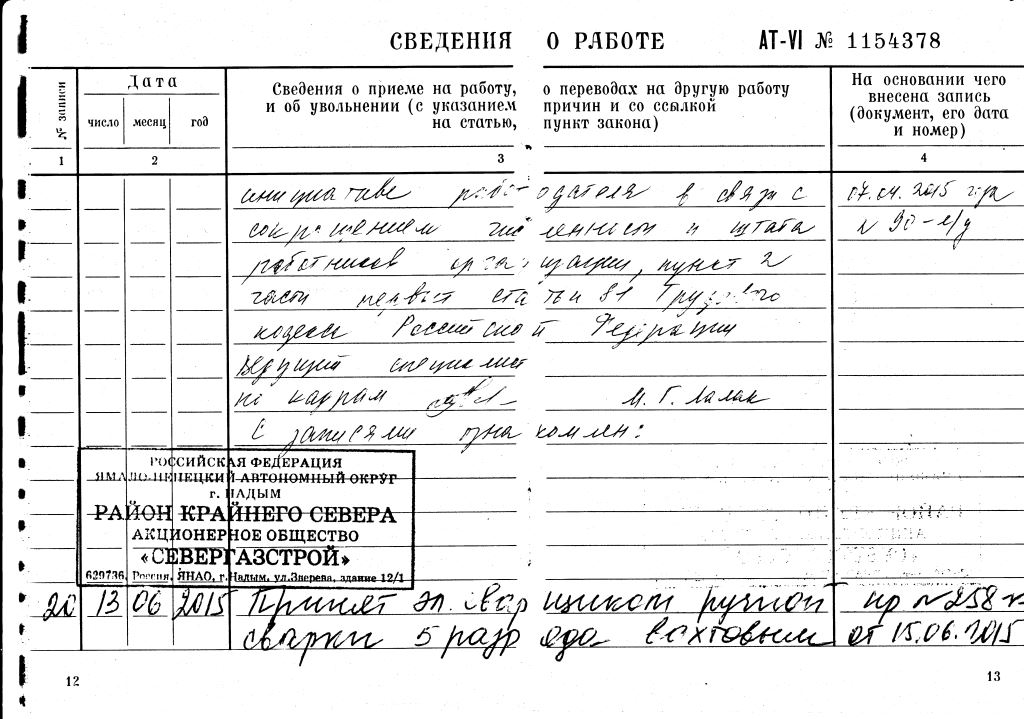 СВЕДЕНИЯ О РАБОТЕ АТ-VI № 1154378
№ записи
Дата
число месяц год
Сведения о приеме на работу, о переводах на другую работу
и об увольнении (с указанием причин и со ссылкой
на статью, пункт закона)
На основании чего
внесена запись
(документ, его дата
и номер)
1 2 3 4
инициативе работодателя в связи с 07.04.2015 года
сокращением численности и штата № 90-л/у
работников организации, пункт 2
части первой статьи 81 Трудового
кодекса Российской Федерации
Ведущий специалист
по кадрам М. Г. Лалак
С записями ознакомлен:
РОССИЙСКАЯ ФЕДЕРАЦИЯ
ЯМАЛО-НЕНЕЦКИЙ АВТОНОМНЫЙ ОКРУГ
г. НАДЫМ
РАЙОН КРАЙНЕГО СЕВЕРА
АКЦИОНЕРНОЕ ОБЩЕСТВО
«СЕВЕРГАЗСТРОЙ»
629736, Россия, ЯНАО, г.Надым, ул.Зверева, здание 12/1
20 13 06 2015 Принят эл. сварщиком ручной пр №258 к
сварки 5 разряда вахтовым от 15.06.2015
12 13